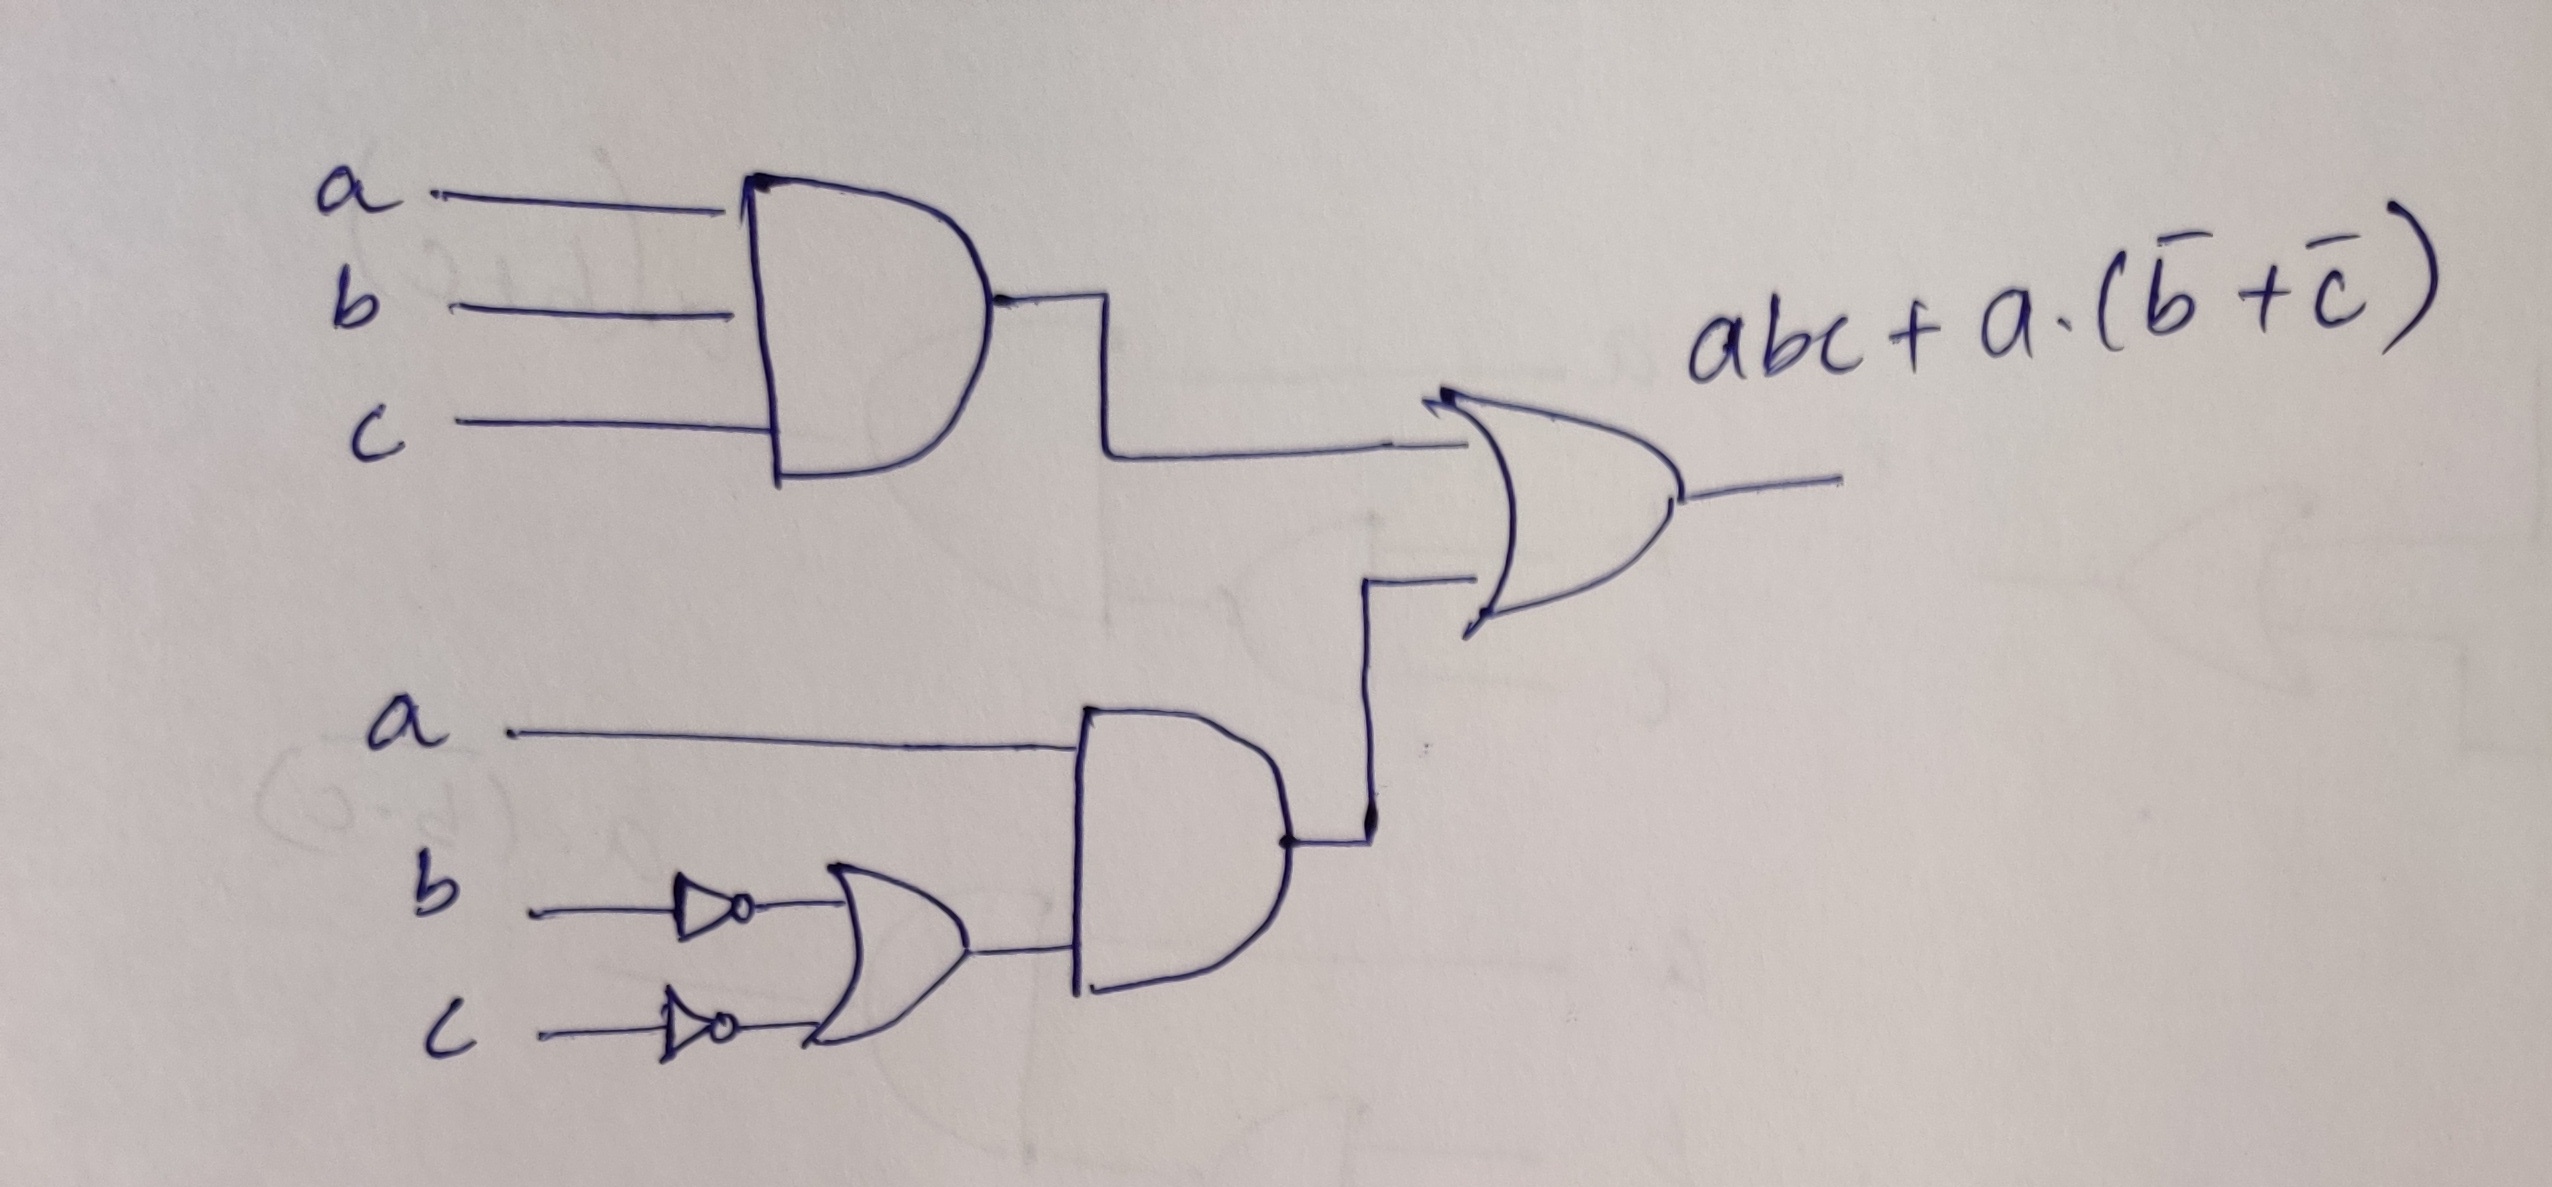 a
b
c
abc + a.(b̅ + c̅)
a
b
c